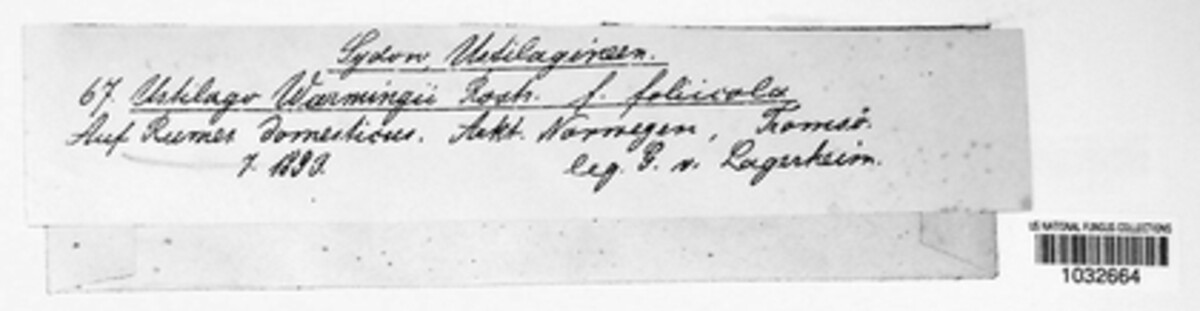 Sydow, Ustilagineen.
67. Ustilago Warmingii Rostr. f. foliicola
Auf Rumex domesticus. Arkt. Norwegen, Tromsö.
7. 1893. leg. G. v. Lagerheim.
US NATIONAL FUNGUS COLLECTIONS
1032664